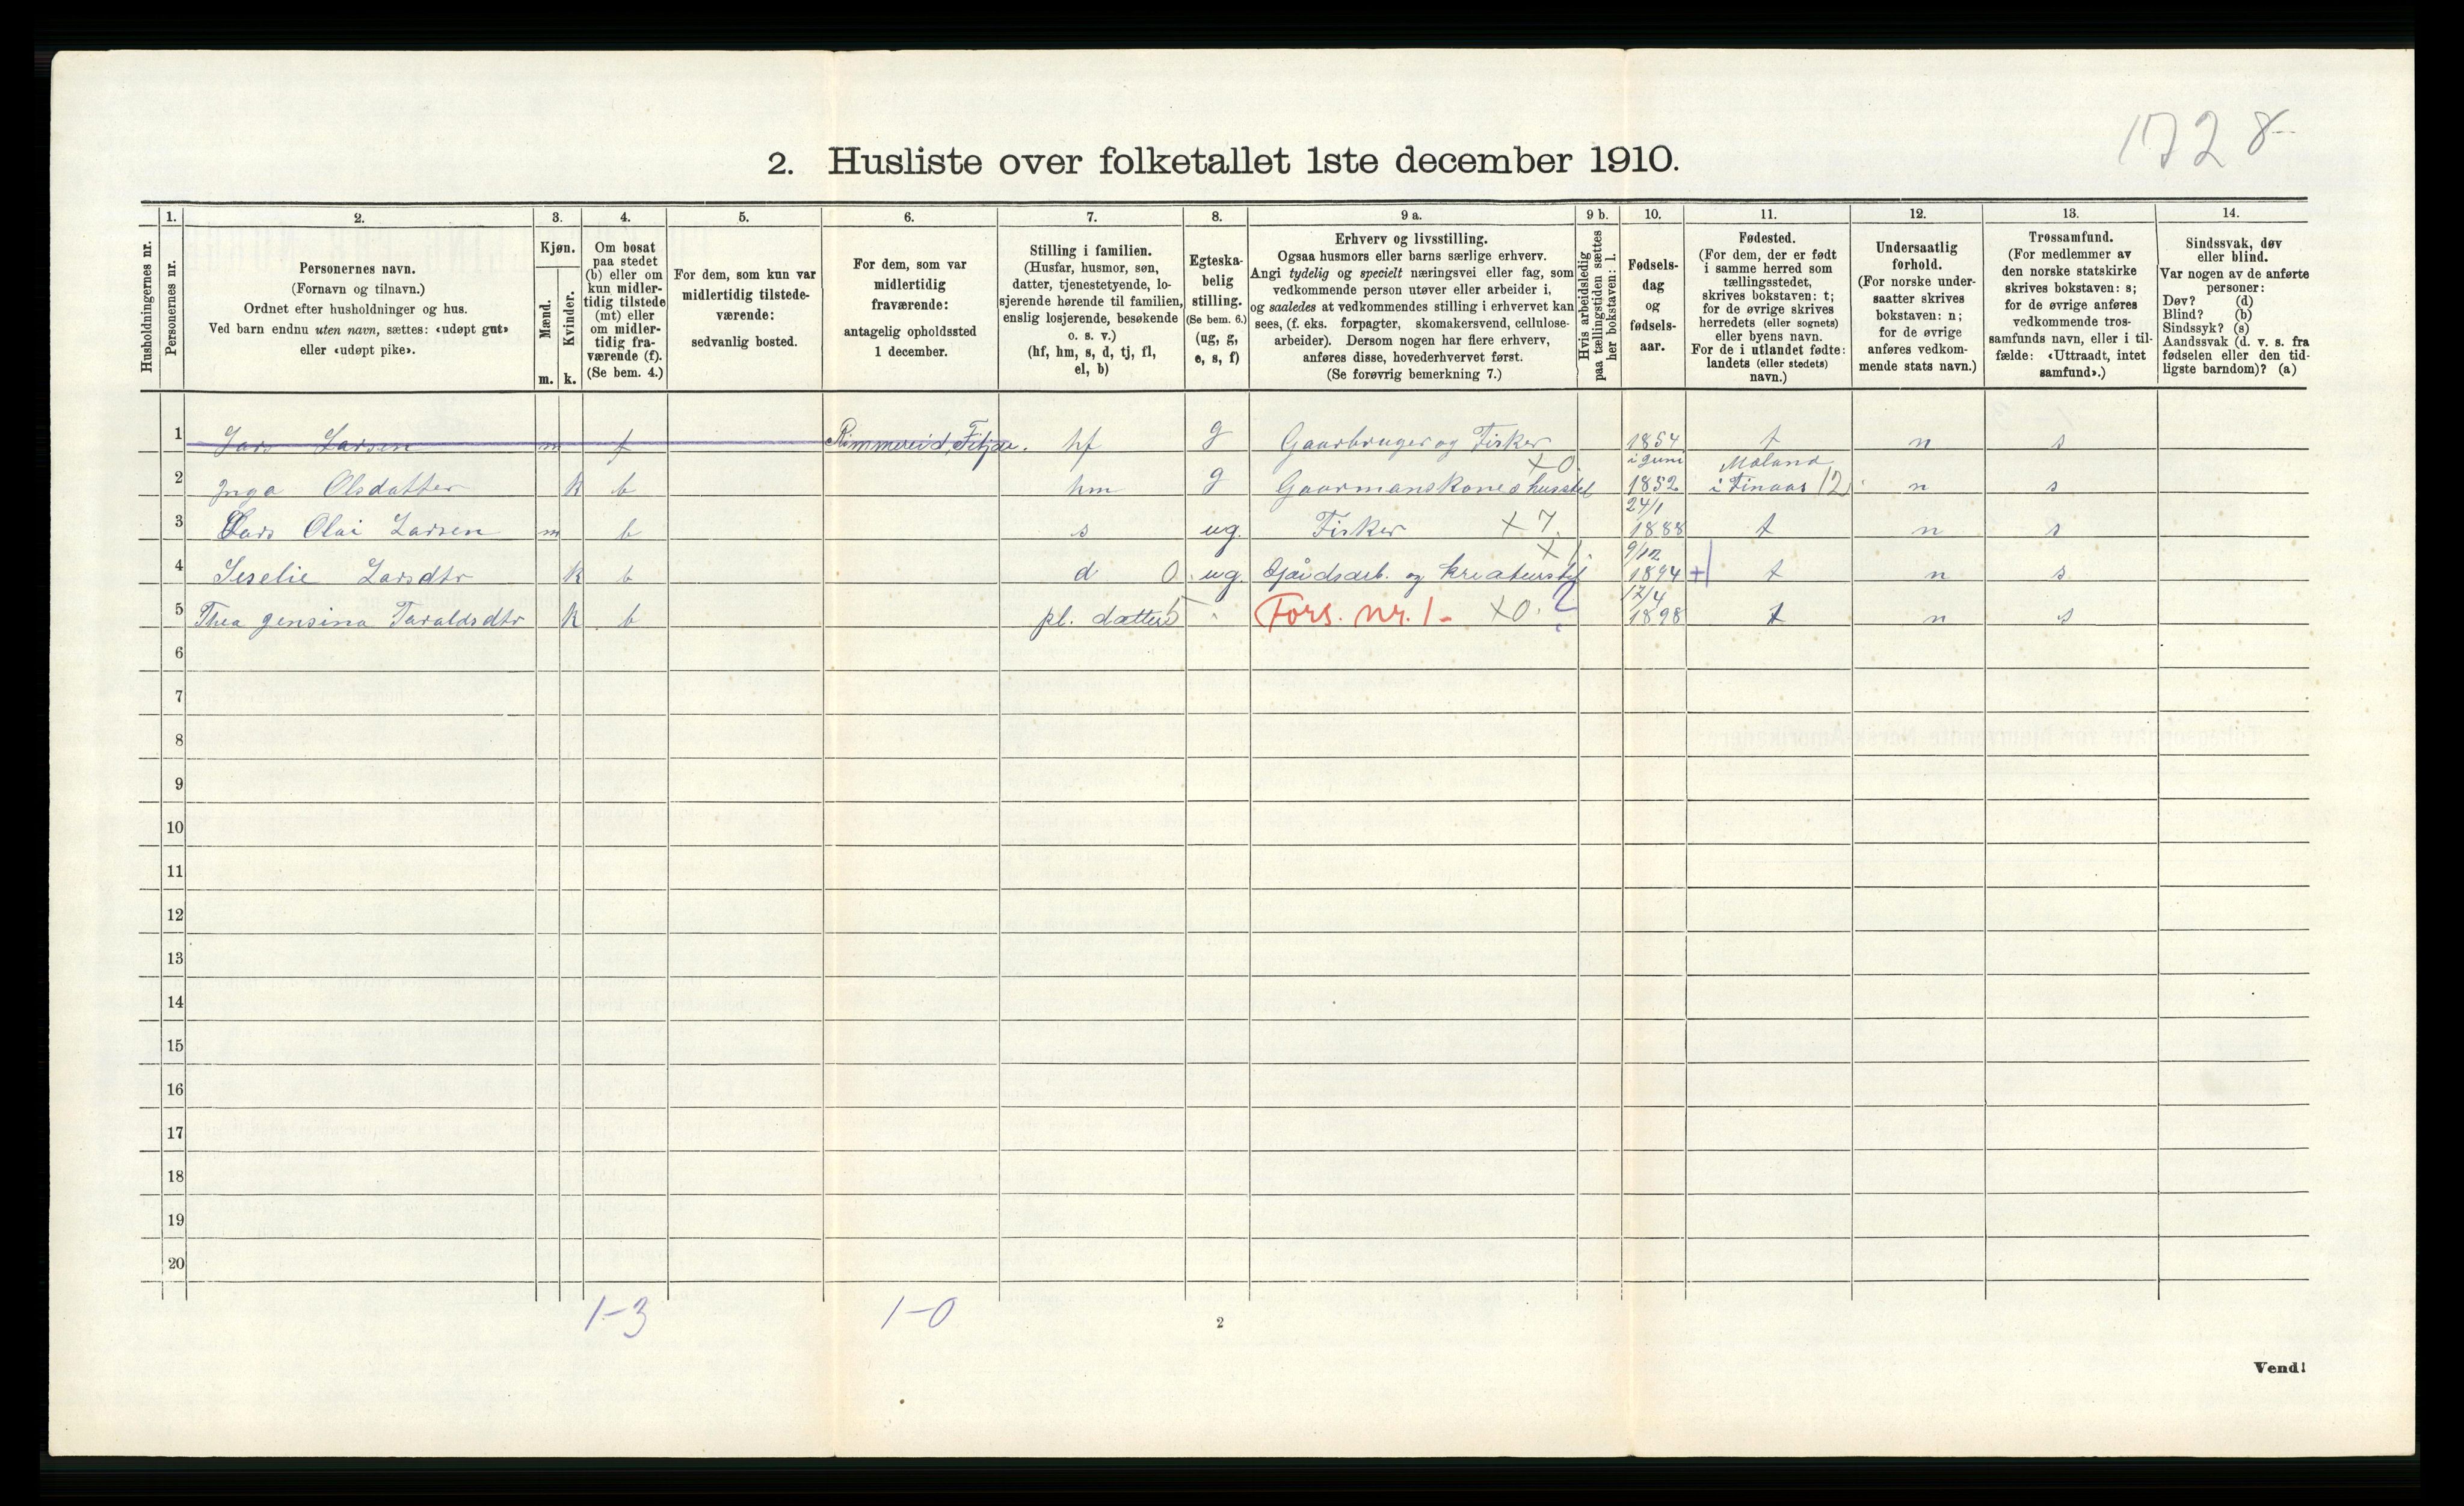 1728
2. Husliste over folketallet 1ste december 1910.
Husholdningernes nr.
1.
Personernes nr.
2.
Personernes navn.
(Fornavn og tilnavn.)
Ordnet efter husholdninger og hus.
Ved barn endnu uten navn, sættes: «udøpt gut»
eller «udøpt pike».
3.
Kjøn.
Mænd.
Kvinder.
m. k.
4.
Om bosat
paa stedet
(b) eller om
kun midler-
tidig tilstede
(mt) eller
om midler-
tidig fra-
værende (f).
(Se bem. 4.)
5.
For dem, som kun var
midlertidig tilstede-
værende:
sedvanlig bosted.
6.
For dem, som var
midlertidig
fraværende:
antagelig opholdssted
1 december.
7.
Stilling i familien.
(Husfar, husmor, søn,
datter, tjenestetyende, lo-
sjerende hørende til familien,
enslig losjerende, besøkende
o. s. v.)
(hf, hm, s, d, tj, fl,
el, b)
8.
Egteska-
belig
stilling.
(Se bem. 6.)
(ug, g,
e, s, f)
9 a.
Erhverv og livsstilling.
Ogsaa husmors eller barns særlige erhverv.
Angi tydelig og specielt næringsvei eller fag, som
vedkommende person utøver eller arbeider i,
og saaledes at vedkommendes stilling i erhvervet kan
sees, (f. eks. forpagter, skomakersvend, cellulose-
arbeider). Dersom nogen har flere erhverv,
anføres disse, hovederhvervet først.
(Se forøvrig bemerkning 7.)
9 b.
Hvis arbeidsledig
paa tællingstiden sættes
her bokstaven: l.
10.
Fødsels-
dag
og
fødsels-
aar.
11.
Fødested.
(For dem, der er født
i samme herred som
tællingsstedet,
skrives bokstaven: t;
for de øvrige skrives
herredets (eller sognets)
eller byens navn.
For de i utlandet fødte:
landets (eller stedets)
navn.)
12.
Undersaatlig
forhold.
(For norske under-
saatter skrives
bokstaven: n;
for de øvrige
anføres vedkom-
mende stats navn.)
13.
Trossamfund.
(For medlemmer av
den norske statskirke
skrives bokstaven: s;
for de øvrige anføres
vedkommende tros-
samfunds navn, eller i til-
fælde: «Uttraadt, intet
samfund».)
14.
Sindssvak, døv
eller blind.
Var nogen av de anførte
personer:
Døv? (d)
Blind? (b)
Sindssyk? (s)
Aandssvak (d. v. s. fra
fødselen eller den tid-
ligste barndom)? (a)
1 Lars Larsen m f Rimmereid, Fitjar. hf g Gaarbruger og Fisker 1854 t n s
2 Inga Olsdatter k b hm g Gaarmanskone husstel X0. i Juni 1852 Moland i Finaas 12 n s
3 Lars Olai Larsen m b s ug. Fisker X 7. 24/1 1888 t n s
4 Seselie Larsdtr k b d 0 ug. Gårdsarb. og kreaturstel X 1. 9/12 1894 t n s
5 Thea Jensina Taraldsdtr k b pl. datter 5 Fors. nr. 1- X0. ? 17/4 1898 t n s
6
7
8
9
10
11
12
13
14
15
16
17
18
19
20
1-3 1-0
2
Vend!